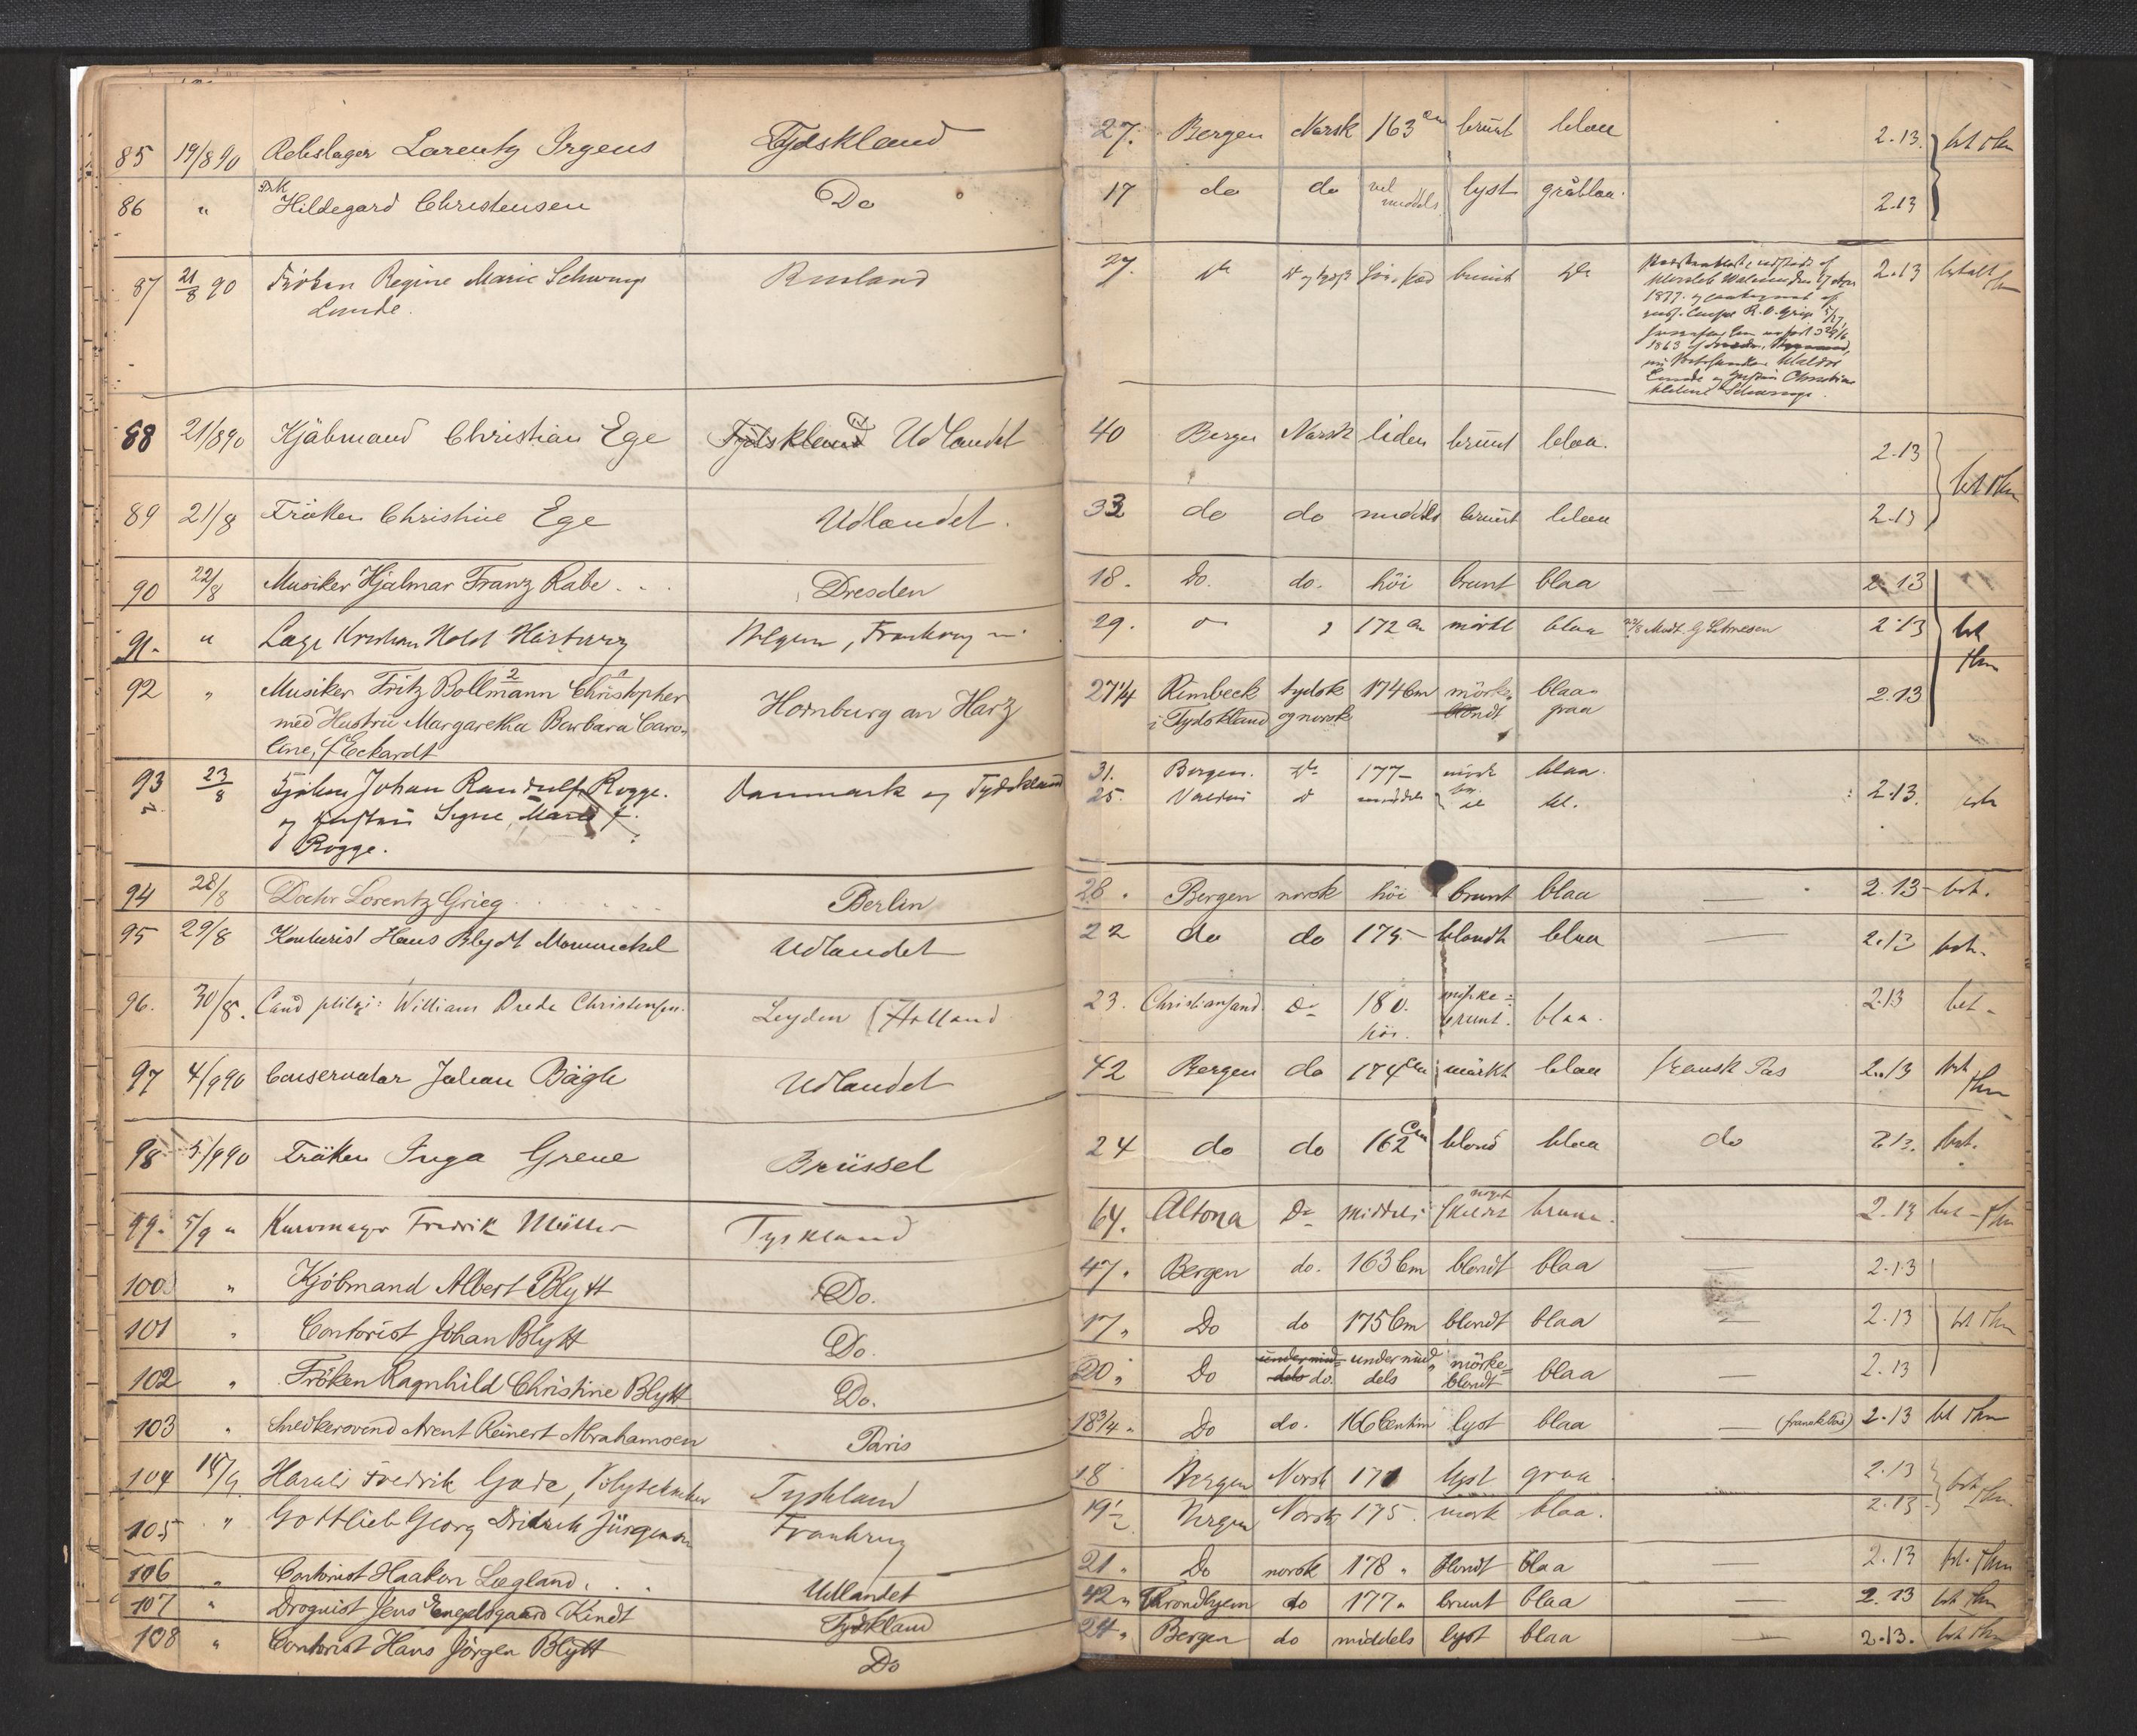 85 19/8 90 Rebslager Lorentz Irgens Tydskland 27. Bergen Norsk 163 cm brunt blaa 2.13. bet Thm
86 " Frk Hildegard Christensen Do 17 do do vel middels lyst gråblaa. 2.13
87 21/8 90 Fröken Regine Marie Schwings Rusland 27. brunt 2.13 betalt
Lunde.
1877.
1863
88 21/8 90 Kjøbmand Christian Ege Tydskland Udlandet 40 Bergen Norsk liden brunt blaa. 2.13
89 21/8 Fröken Christine Ege Udlandet. 33 do do middels brunt blaa 2.13 bet Thm
90 22/8 Musiker Hjalmar Franz Rabe . . . Dresden 18. Do. do. höi brunt blaa — 2.13
91. " Læge Holst Belgien, Frankrig 29. 172 cm mörkt blaa 2.13 bet Thm
92 " Musiker Fritz Bollmann 2 Christopher 1 Hornburg an Harz 27 1/4 Rimbeck tydsk 174 Cm mörke blaa 2.13
med Hustru Margaretha Barbara Caro- i Tydskland og norsk blondt graa
line, f Eckardt
93 23/8 Johan Randulf Rogge. Danmark og Tydskland 31. Bergen. 177 mörk blaa. 2.13. bet
og Hustru Signe Marie f. 25. middels bl.
Rogge.
94 28/8 Doctor Lorentz Grieg Berlin 28. Bergen norsk höi brunt blaa — 2.13 bet.
95 29/8 Kontorist Hans Blydt Mommekel Udlandet 22 do do 175 blondt blaa — 2.13 bet.
96. 30/8. Cand philos: William Christensen. Leyden (Holland 23. Christiansand. Do 180. höi. mörke= brunt. blaa. 2.13 bet
97 4/9 90 Conservator Johan Bögh Udlandet 42 Bergen do 174 Cm mörkt blaa fransk Pas 2.13 bet Thm
98 5/9 90 Fröken Inga Greve Brüssel 24 do do 162 Cm blond blaa do 2.13. bet.
99. 5/9 " Kurvmager Fredrik Müller Tyskland 64. Altona Do middels noget skaldet brune. 2.13 bet Thm
100 " Kjöbmand Albert Blytt Do. 47. Bergen do. 163 Cm blondt blaa — 2.13
101 " Contorist Johan Blytt Do. 17. Do do 175 Cm blondt blaa 2.13 bet Thm
102 " Fröken Ragnhild Christine Blytt Do. 20. Do under mid- dels do. under mid- dels mörke= blondt blaa — 2.13
103 " Snedkersvend Arent Reinert Abrahamsen Paris 18 3/4. Do do. 166 Centim lyst blaa — (fransk Pas) 2.13 bet Thm
104 14/9. Harald Fredrik Gade, Polytekniker Tyskland 18 Bergen Norsk 171 lyst graa 2.13 bet Thm.
105 " Gottlieb Georg Didrich Jürgensen Frankrig 19 1/2 Bergen Norsk 175. mörk blaa. 2.13
106 " Contorist Haakon Lægland. . . Udlandet 21. Do norsk 178 " blondt blaa — 2.13 bet. Thm
107 " Droguist Jens Engelsgaard Kindt Tydskland 42. Throndhjem do 177. brunt blaa — 2.13 bet Thm
108 " Contorist Hans Jörgen Blytt Do 24. Bergen do middels lyst blaa — 2.13. bet Thm